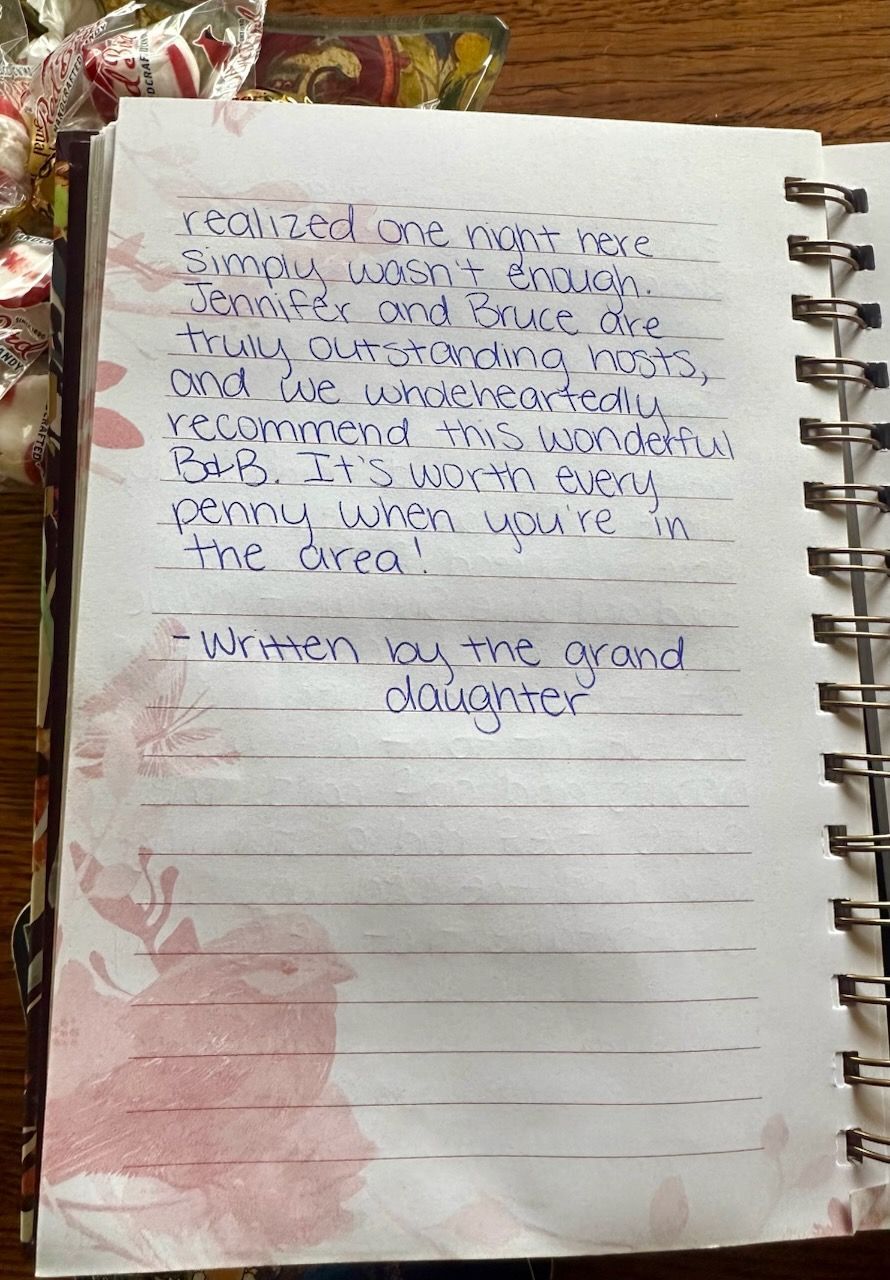 Red Bird
realized one night here
simply wasn't enough.
Jennifer and Bruce are
truly outstanding hosts,
and we wholeheartedly
recommend this wonderful
B&B. It's worth every
penny when you're in
the area!
-Written by the grand
daughter